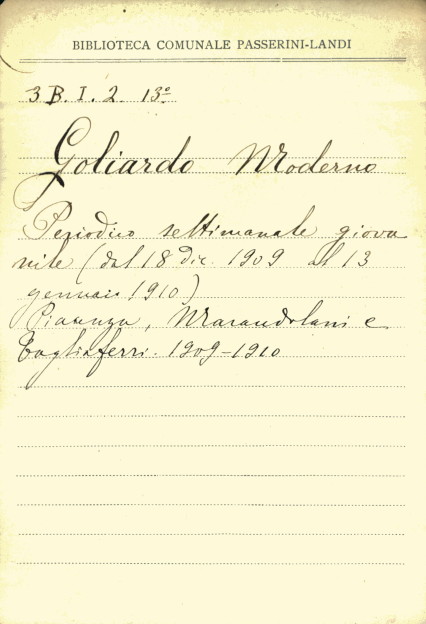 BIBLIOTECA COMUNALE PASSERINI-LANDI
3 B. I. 2. 13º
Goliardo Moderno
Periodico settimanale giova
nile (dal 18 dic. 1909 al 13
gennaio 1910)
Piacenza, Marandolani e
Tagliaferri. 1909-1910